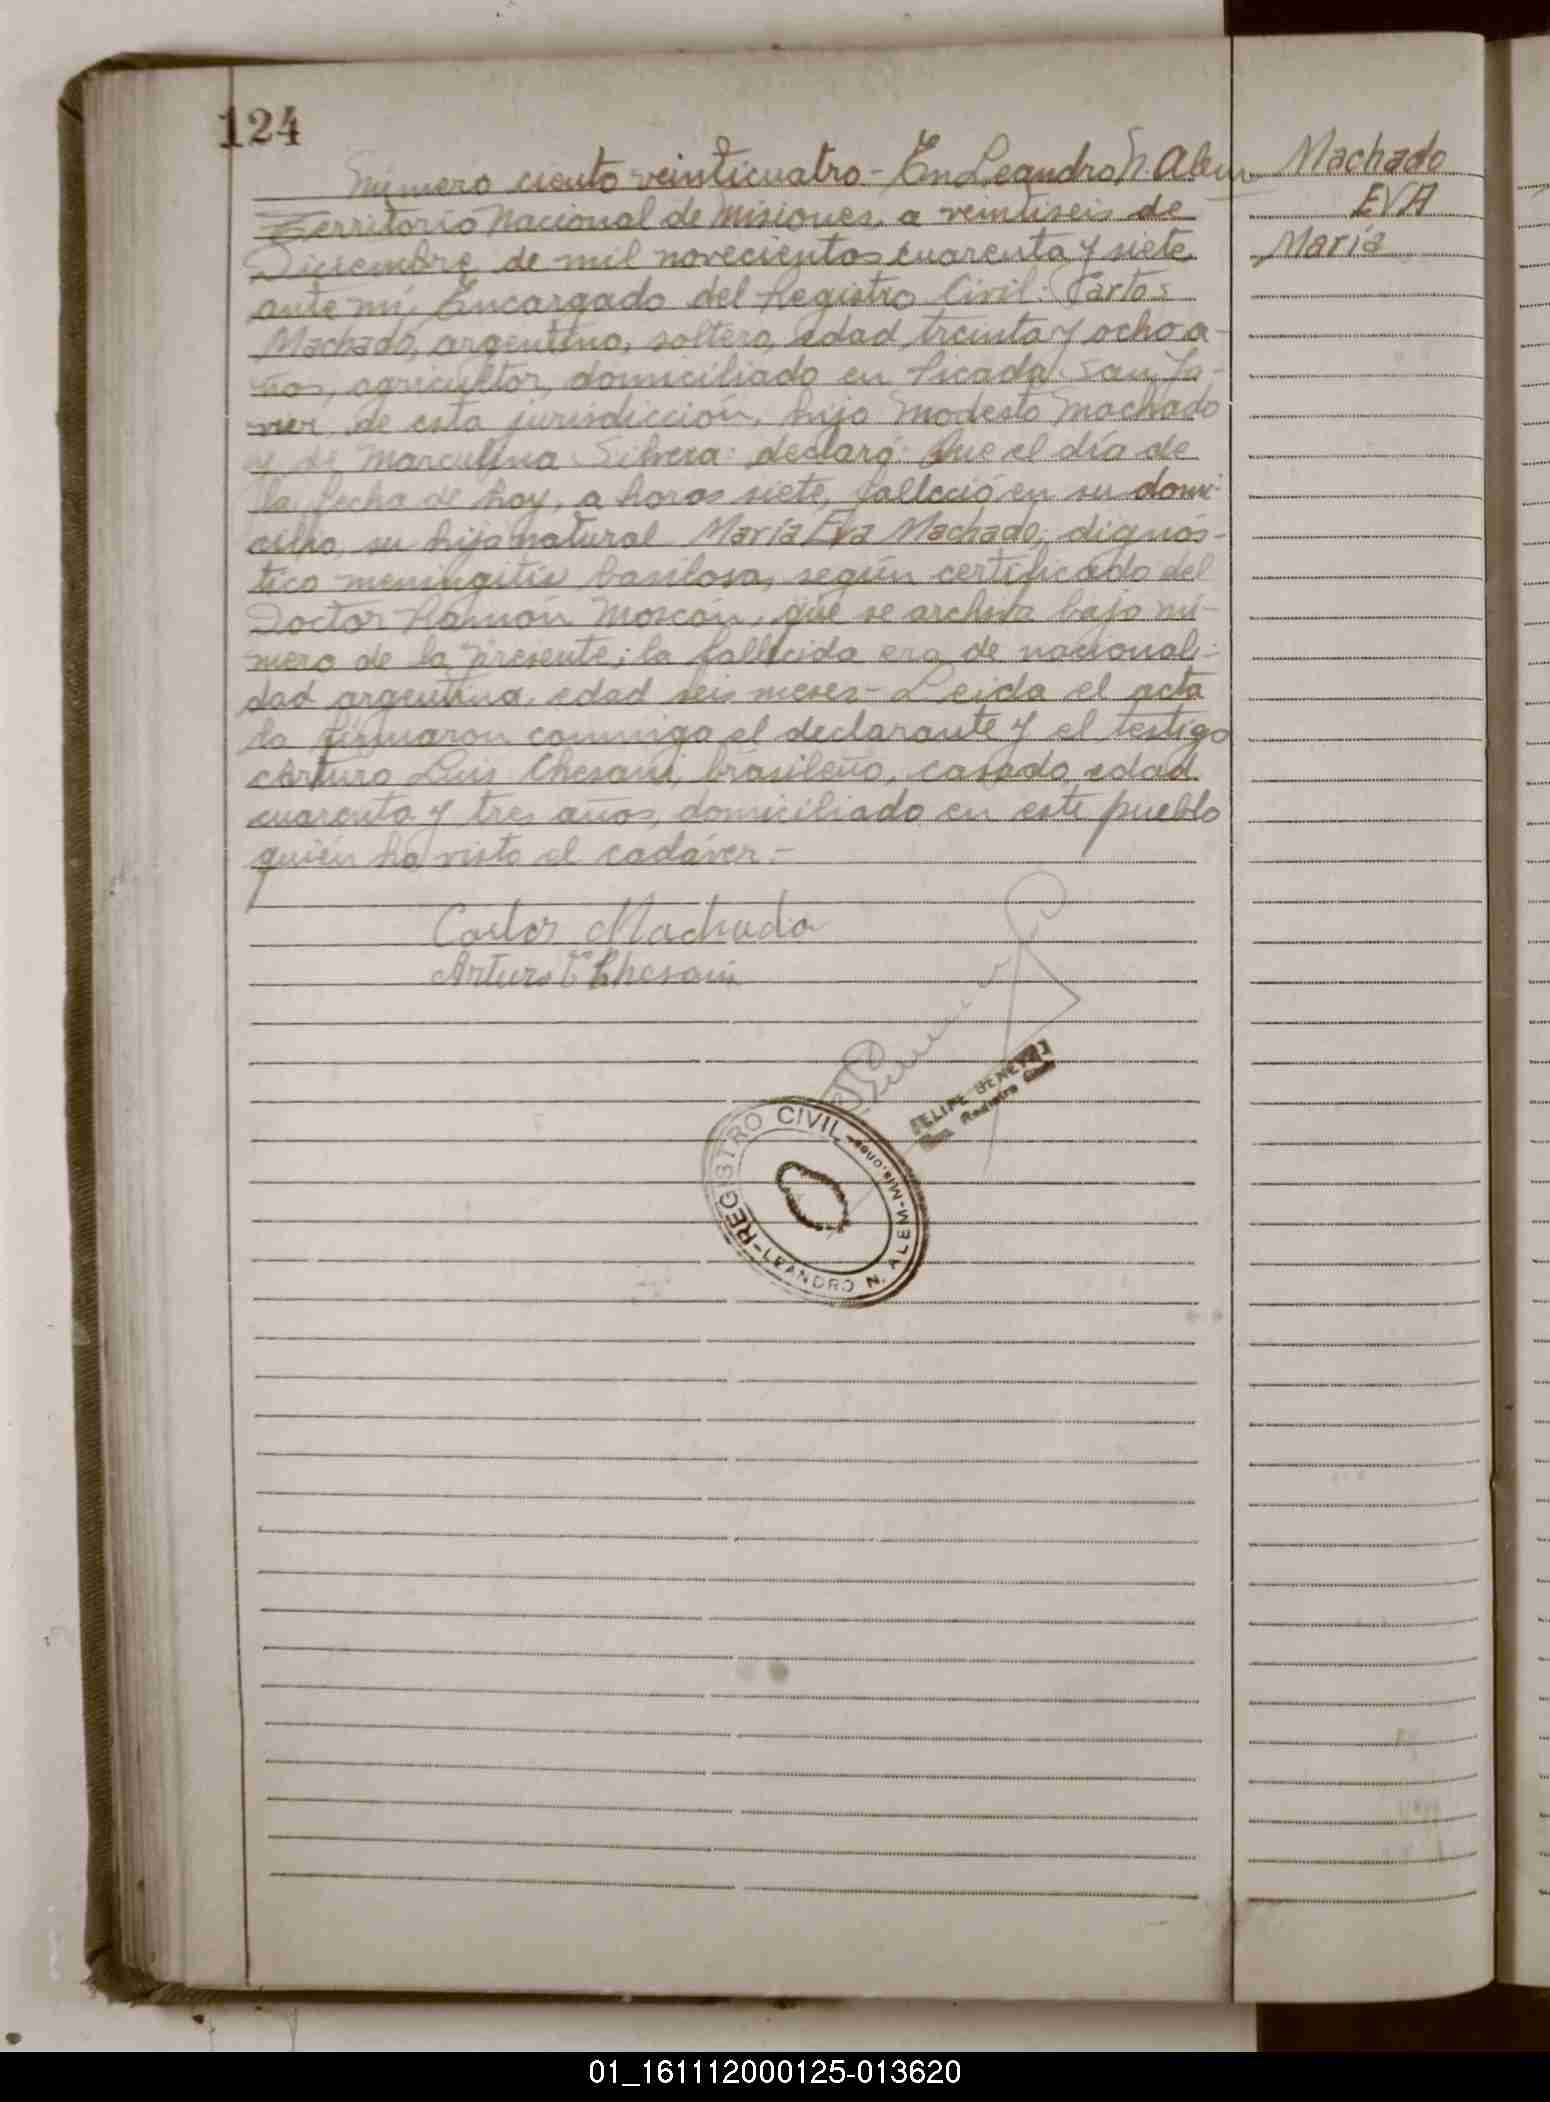 124
Número ciento veinticuatro - En Leandro N. Alem
Territorio Nacional de Misiones, a veintiseis de
Diciembre de mil novecientos cuarenta y siete,
ante mí, Encargado del Registro Civil: Carlos
Machado, argentino, soltero, edad treinta y ocho a-
ños, agricultor, domiciliado en Picada San Ja-
vier de esta jurisdicción, hijo Modesto Machado
y de Marculina Silvera: declaró: Que el día de
la fecha de hoy, a horas siete, falleció en su domi-
cilio, su hija natural María Eva Machado, dignós-
tico meningitis basilosa, según certificado del
Doctor Ramón, que se archiva bajo nú-
mero de la presente; la fallecida era de nacionali-
dad argentina, edad seis meses - Leida el acta
la firmaron conmigo el declarante y el testigo
Arturo Luis Chesani, brasileño, casado, edad
cuarenta y tres años, domiciliado en este pueblo
quién ha visto el cadáver.-
Carlos Machado
Arturo L. Chesani
Machado
EVA
María
FELIPE BENE
Registro Civil
REGISTRO CIVIL
LEANDRO N. ALEM-Misiones
01_161112000125-013620